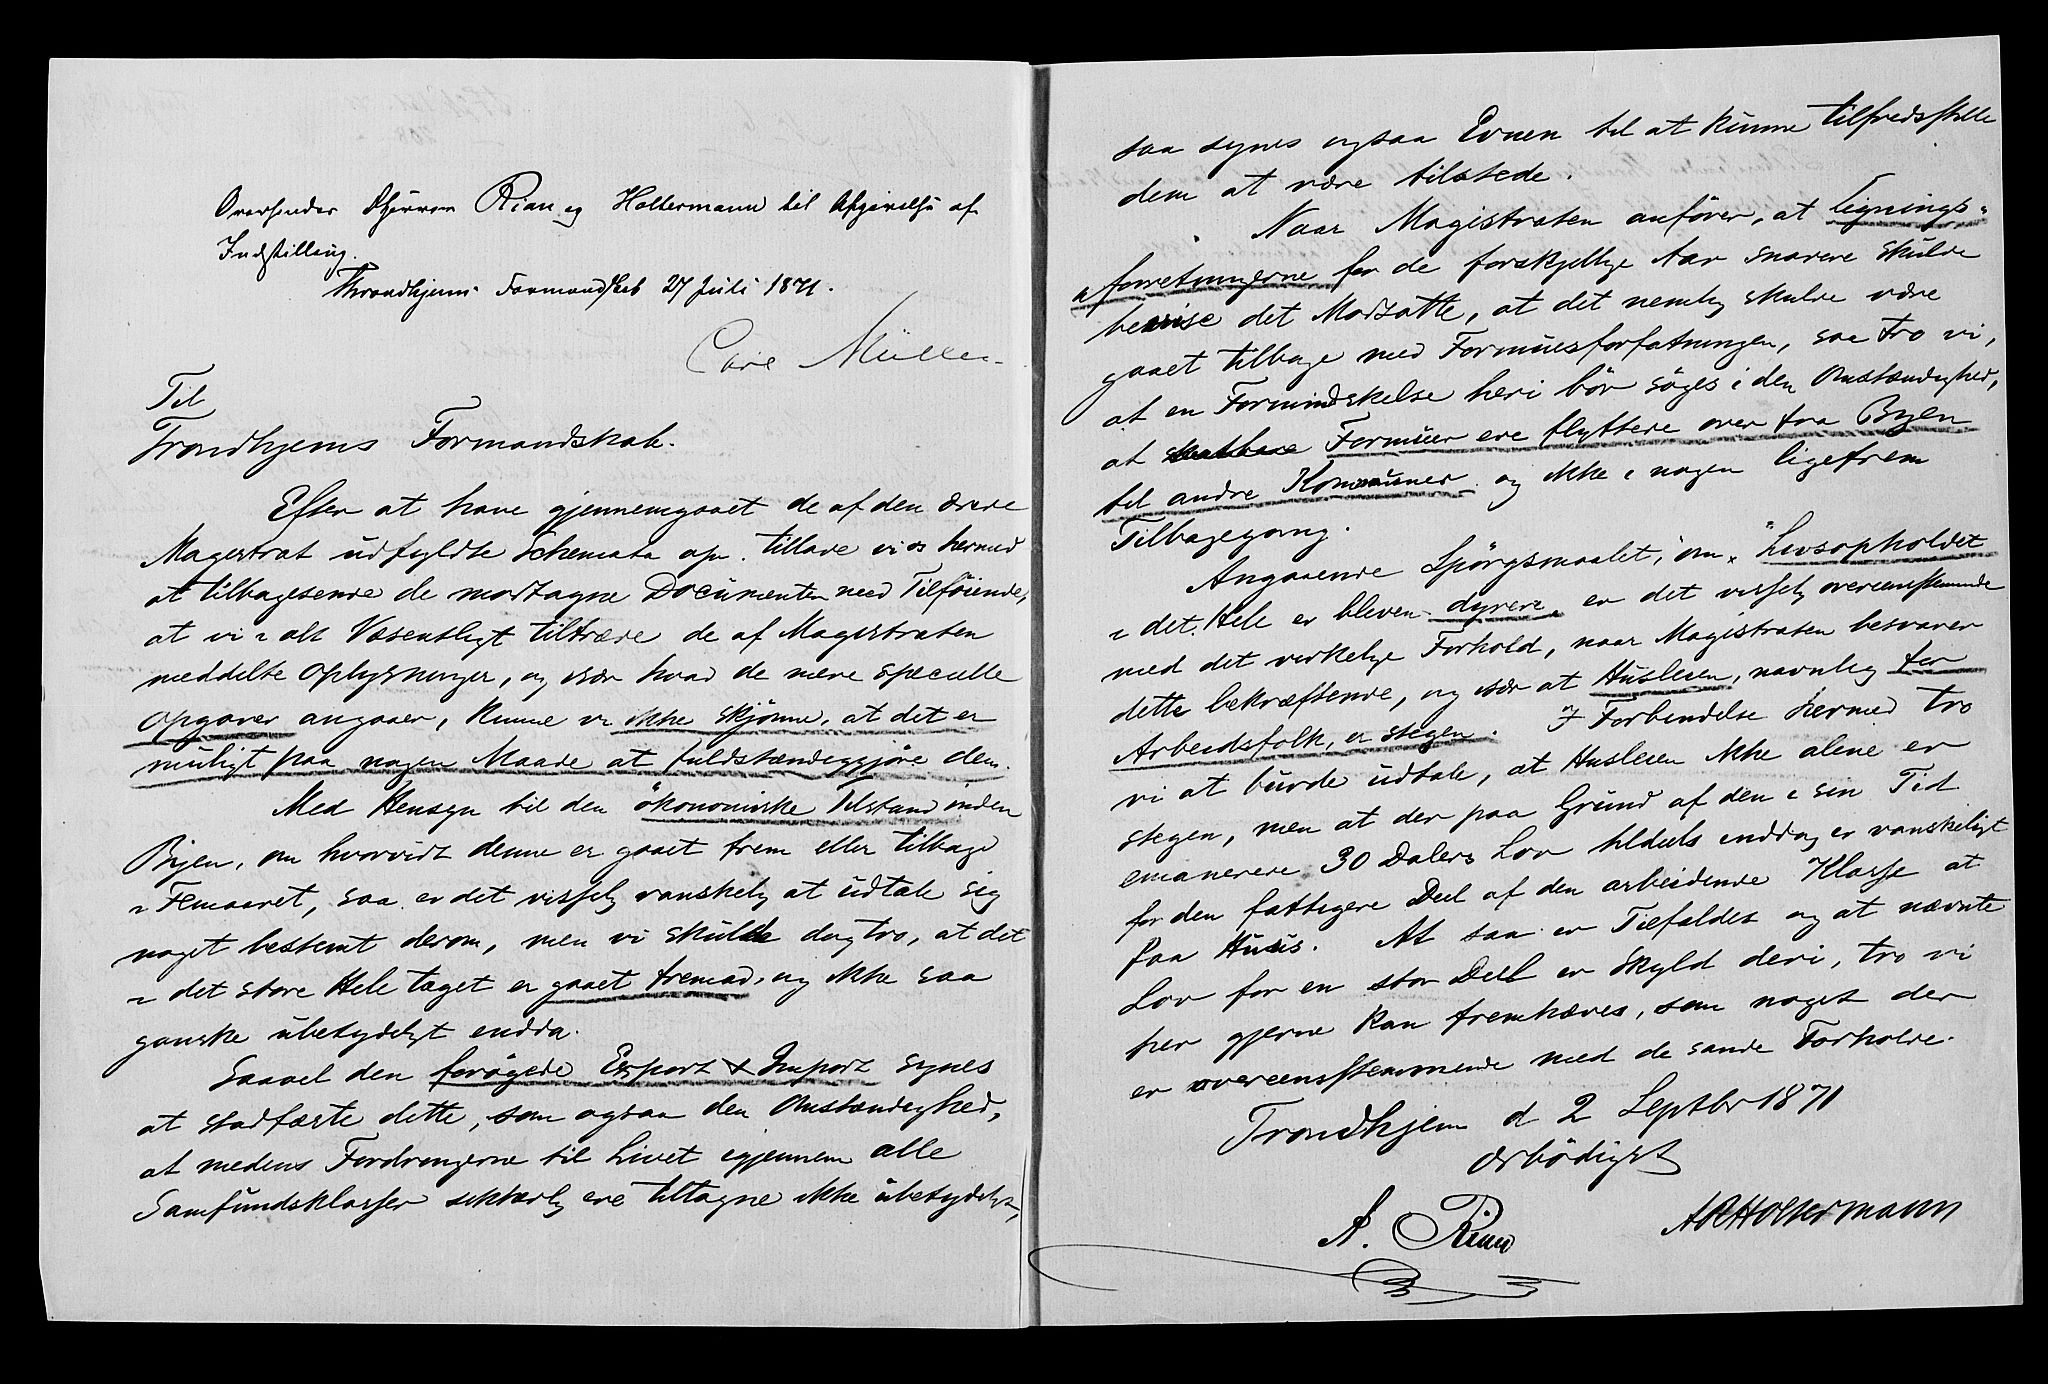 Oversendes DHerrer Rian og Holtermann til Afgivelse af
Indstilling.
Throndhjems Formandskab 27 Juli 1871.
Carl Müller
Til
Trondhjems Formandskab.
Efter at have gjennemgaaet de af den ærede
Magistrat udfyldte Schemata op. tillade vi os hermed
at tilbagesende de modtagne Documenter med Tilföiende,
at vi i alt Væsentligt tiltræde de af Magistraten
meddelte Oplysninger, og især hvad de mere specielle
Opgaver angaaer, kunne vi ikke skjönne, at det er
muligt paa nogen Maade at fuldstændiggjöre dem.
Med Hensyn til den ökonomiske Tilstand inden
Byen, om hvorvidt denne er gaaet frem eller tilbage
i Femaaret, saa er det visselig vanskelig at udtale sig
noget bestemt derom, men vi skulde dog tro, at det
i det store Hele taget er gaaet fremad, og ikke saa
ganske ubetydeligt endda.
Saavel den forögede Export & Import synes
at stadfæste dette, som ogsaa den Omstændighed,
at medens Fordringerne til Livet igjennem alle
Samfundsklasser sikkerlig ere tiltagne ikke ubetydeligt,
saa synes ogsaa Evnen til at kunne tilfredsstille
dem at være tilstede.
Naar Magistraten anförer, at Lignings-
forretningerne for de forskjellige Aar snarere skulde
bevise det Modsatte, at det nemlig skulde være
gaaet tilbage med Formuesforfatningen, saa tro vi,
at en Formindskelse heri bör söges i den Omstændighed,
at skatbare Formuer ere flyttede over fra Byen
til andre Kommuner og ikke i nogen ligefrem
Tilbagegang.
Angaaende Spörgsmaalet, om "Livsopholdet
i det Hele er bleven dyrere", er det visselig overeensstemmende
med det virkelige Forhold, naar Magistraten besvarer
dette bekræftende, og især at Huslejen, navnlig for
Arbeidsfolk, er stegen. I Forbindelse hermed tro
vi at burde udtale, at Huslejen ikke alene er
stegen, men at der paa Grund af den i sin Tid
emanerede 30 Dalers Lov tildeels endda er vanskeligt
for den fattigere Deel af den arbeidende Klasse at
faa Huus. At saa er Tilfældet og at nævnte
Lov for en stor Deel er Skyld deri, tro vi
her gjerne kan fremhæves, som noget der
er overeensstemmende med de sande Forholde.
Trondhjem d 2 Septbr 1871
ærbödigst
A. Rian AR Holtermann